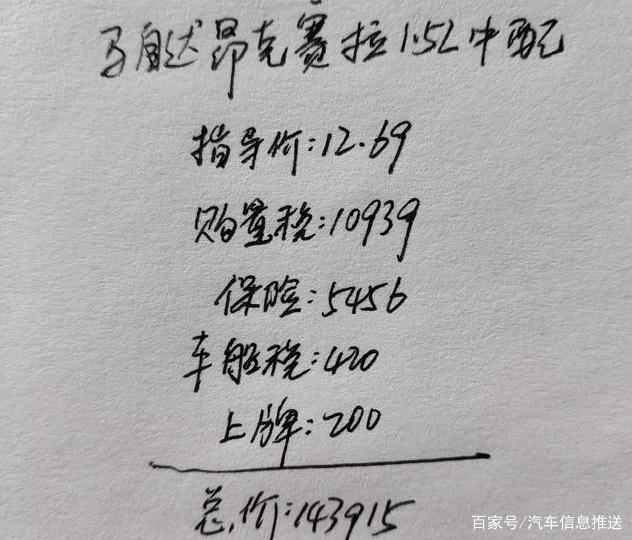 马自达昂克赛拉1.5L中配
指导价:12.69
购置税:10939
保险:5456
车船税:420
上牌:200
总价:143915
百家号/汽车信息推送